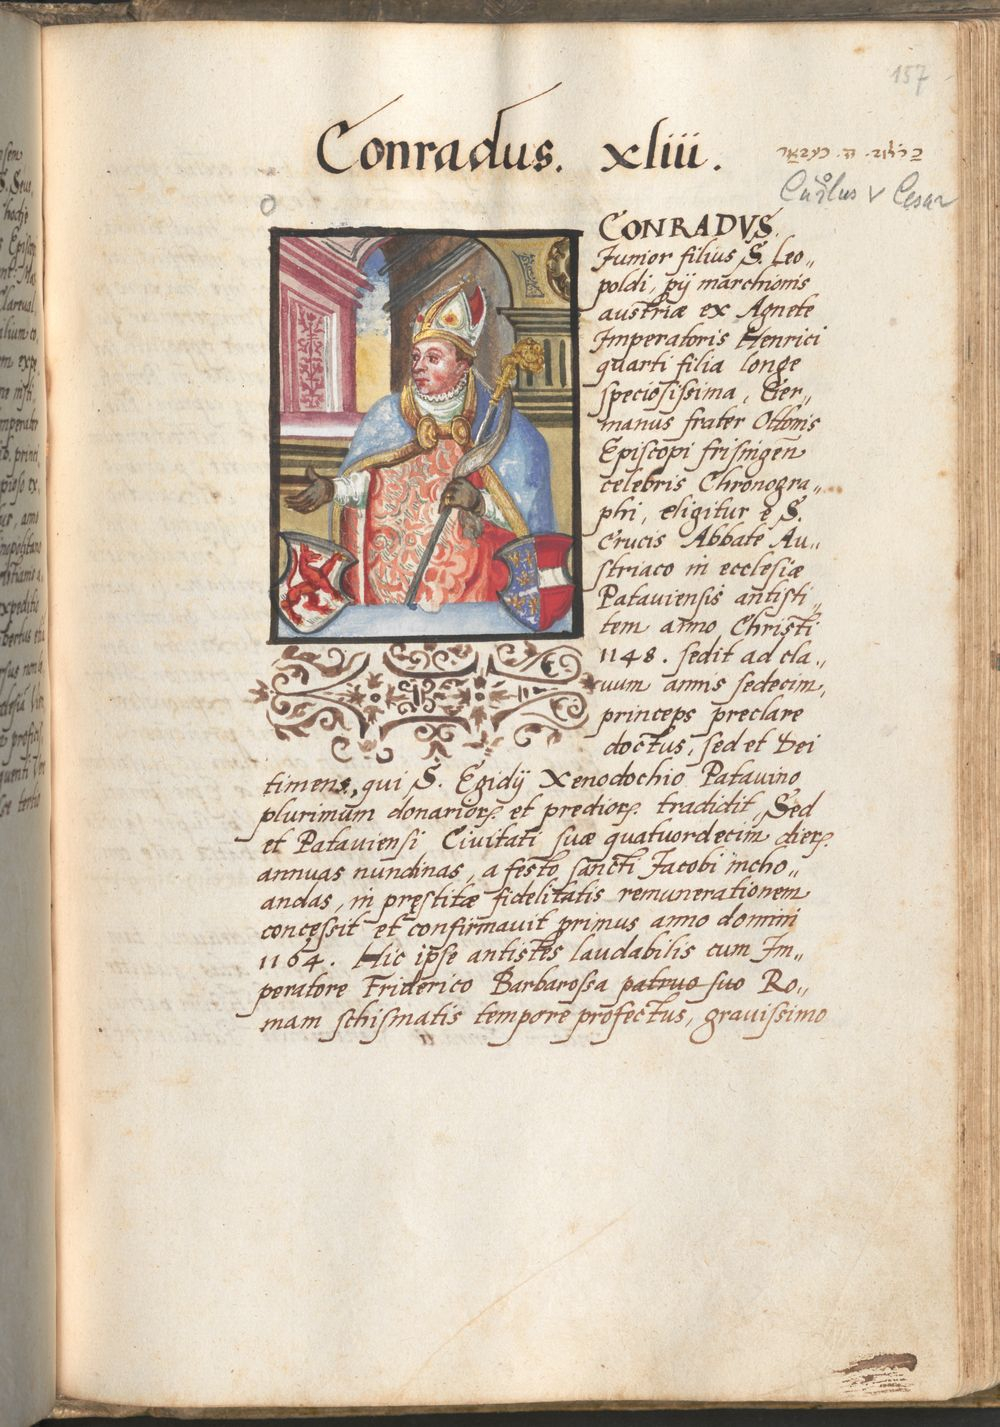 157
Conradus. xliii.
Carolus V Cesar
CONRADVS
Junior filius S. Leo„
poldi, pij marchionis
austriæ ex Agnete
Imperatoris Henrici
quarti filia longe
speciosissima, Ger„
manus frater Ottonis
Episcopi frisingen̄
celebris Chronogra„
phi, eligitur è S.
Crucis Abbate Au„
striaco in ecclesiæ
Patauiensis antisti„
tem anno Christi
1148. sedit ad cla„
uum annis sedecim,
princeps preclare
doctus, sed et Dei
timens, qui S. Egidij Xenodochio Patauino
plurimum donarioꝝ et predioꝝ tradidit, Sed
et Patauiensi Ciuitati suæ quatuordecim dieꝝ
annuas nundinas, a festo sancti Jacobi incho„
andas, in pręstitæ fidelitatis remunerationem
concessit et confirmauit primus anno domini
1164. Hic ipse antistes laudabilis cum Im„
peratore Friderico Barbarossa patruo suo Ro„
mam schismatis tempore profectus, grauissimo